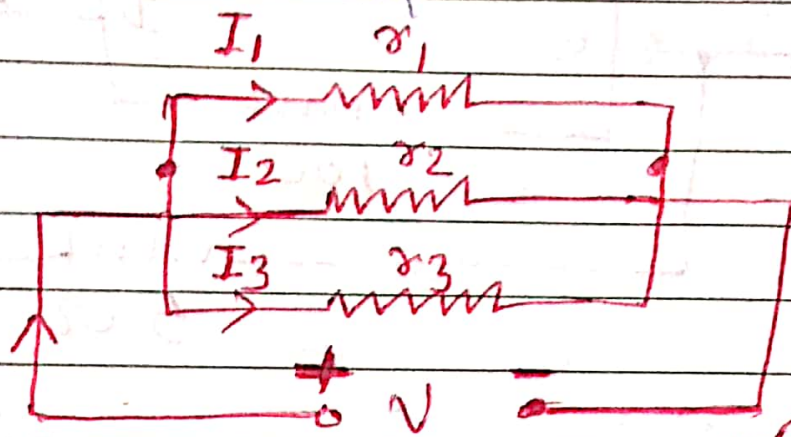 I₁ r₁
I₂ r₂
I₃ r₃
+ −
V